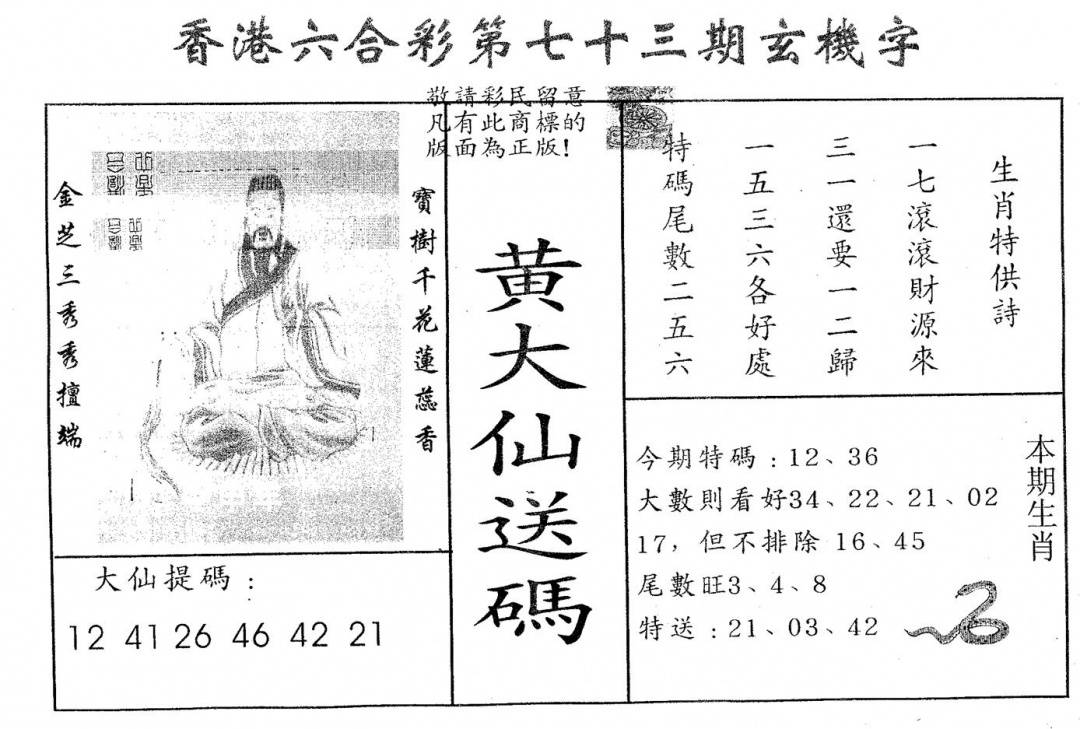 香港六合彩第七十三期玄機字
敬請彩民留意
凡有此商標的
版面為正版!
金芝三秀秀擅端
寶樹千花蓮蕊香
黃大仙送碼
大仙提碼:
12 41 26 46 42 21
生肖特供詩
一七滾滾財源來
三一還要一二歸
一五三六各好處
特碼尾數二五六
本期生肖
今期特碼:12、36
大數則看好34、22、21、02
17,但不排除 16、45
尾數旺3、4、8
特送:21、03、42